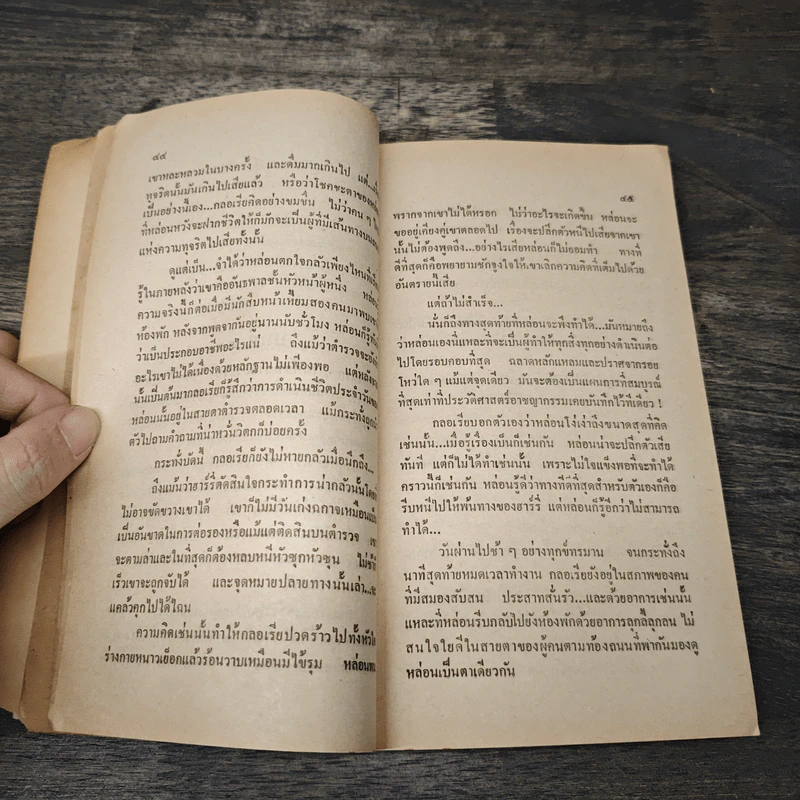 ๔๔
เขาหละหลวมในบางครั้ง และดื่มมากเกินไป แต่...
ทุจริตนั้นมันเกินไปเสียแล้ว หรือว่าโชคชะตาของ
เป็นอย่างนี้เอง...กลอเรียคิดอย่างขมขื่น ไม่ว่าคน ๆ
ที่หล่อนหวังจะฝากชีวิตให้ก็มักจะเป็นผู้ที่มีเส้นทางบน
แห่งความทุจริตไปเสียทั้งนั้น
ดูแต่เป็น...จำได้ว่าหล่อนตกใจกลัวเพียงไหนที่
รู้ในภายหลังว่าเขาคืออันธพาลชั้นหัวหน้าผู้หนึ่ง
ความจริงนี้ก็ต่อเมื่อมีนักสืบหน้าเหี้ยมสองคนมาพบ
ห้องพัก หลังจากพูดจากันอยู่นานนับชั่วโมง หล่อนก็รู้
ว่าเป็นประกอบอาชีพอะไรแน่ ถึงแม้ว่าตำรวจจะยัง
อะไรเขาไม่ได้เนื่องด้วยหลักฐานไม่เพียงพอ แต่หลัง
นั้นเป็นต้นมากลอเรียก็รู้สึกว่าการดำเนินชีวิตประจำวัน
หล่อนนั้นอยู่ในสายตาตำรวจตลอดเวลา แม้กระทั่งถูก
ตัวไปถามคำถามที่น่าหวั่นวิตกก็บ่อยครั้ง
กระทั่งบัดนี้ กลอเรียก็ยังไม่หายกลัวเมื่อนึกถึง...
ถึงแม้ว่าฮาร์รี่ตัดสินใจกระทำการน่ากลัวนั้นโดย
ไม่อาจขัดขวางเขาได้ เขาก็ไม่มีวันเก่งฉกาจเหมือน
เป็นอันขาดในการต่อรองหรือแม้แต่ติดสินบนตำรวจ เขา
จะตามล่าและในที่สุดก็ต้องหลบหนีหัวซุกหัวซุน ไม่ช้า
เร็วเขาจะถูกจับได้ และจุดหมายปลายทางนั้นเล่า...จะ
แคล้วคุกไปได้ไฉน
ความคิดเช่นนั้นทำให้กลอเรียปวดร้าวไปทั้งหัวใจ
ร่างกายหนาวเยือกแล้วร้อนวาบเหมือนมีไข้รุม หล่อน
๔๕
พรากจากเขาไม่ได้หรอก ไม่ว่าอะไรจะเกิดขึ้น หล่อนจะ
ขออยู่เคียงคู่เขาตลอดไป เรื่องจะปลีกตัวหนีไปเสียจากเขา
นั้นไม่ต้องพูดถึง...อย่างไรเสียหล่อนก็ไม่ยอมทำ ทางที่
ดีที่สุดก็คือพยายามชักจูงใจให้เขาเลิกความคิดที่เต็มไปด้วย
อันตรายนี้เสีย
แต่ถ้าไม่สำเร็จ...
นั่นก็ถึงทางสุดท้ายที่หล่อนจะพึงทำได้...มันหมายถึง
ว่าหล่อนเองนี่แหละที่จะเป็นผู้ทำให้ทุกสิ่งทุกอย่างดำเนินต่อ
ไปโดยรอบคอบที่สุด ฉลาดหลักแหลมและปราศจากรอย
โหว่ใด ๆ แม้แต่จุดเดียว มันจะต้องเป็นแผนการที่สมบูรณ์
ที่สุดเท่าที่ประวัติศาสตร์อาชญากรรมเคยบันทึกไว้ทีเดียว !
กลอเรียบอกตัวเองว่าหล่อนโง่เง่าถึงขนาดสุดที่คิด
เช่นนั้น...เมื่อรู้เรื่องเป็นก็เช่นกัน หล่อนน่าจะปลีกตัวเสีย
ทันที แต่ก็ไม่ได้ทำเช่นนั้น เพราะไม่ใจแข็งพอที่จะทำได้
คราวนี้ก็เช่นกัน หล่อนรู้ดีว่าทางที่ดีที่สุดสำหรับตัวเองก็คือ
รีบหนีไปให้พ้นทางของฮาร์รี่ แต่หล่อนก็รู้อีกว่าไม่สามารถ
ทำได้...
วันผ่านไปช้า ๆ อย่างทุกข์ทรมาน จนกระทั่งถึง
นาทีสุดท้ายหมดเวลาทำงาน กลอเรียยังอยู่ในสภาพของคน
ที่มีสมองสับสน ประสาทสั่นรัว...และด้วยอาการเช่นนั้น
แหละที่หล่อนรีบกลับไปยังห้องพักด้วยอาการลุกลี้ลุกลน ไม่
สนใจใยดีในสายตาของผู้คนตามท้องถนนที่พากันมองดู
หล่อนเป็นตาเดียวกัน